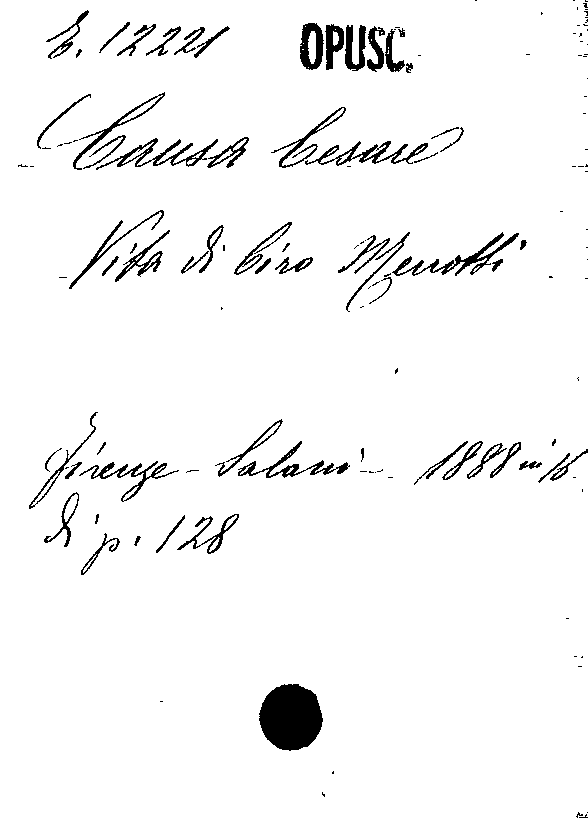 E. 12221 OPUSC.
Causa Cesare
Vita di Ciro Menotti
Firenze - Salani - 1888 in 16
di p. 128